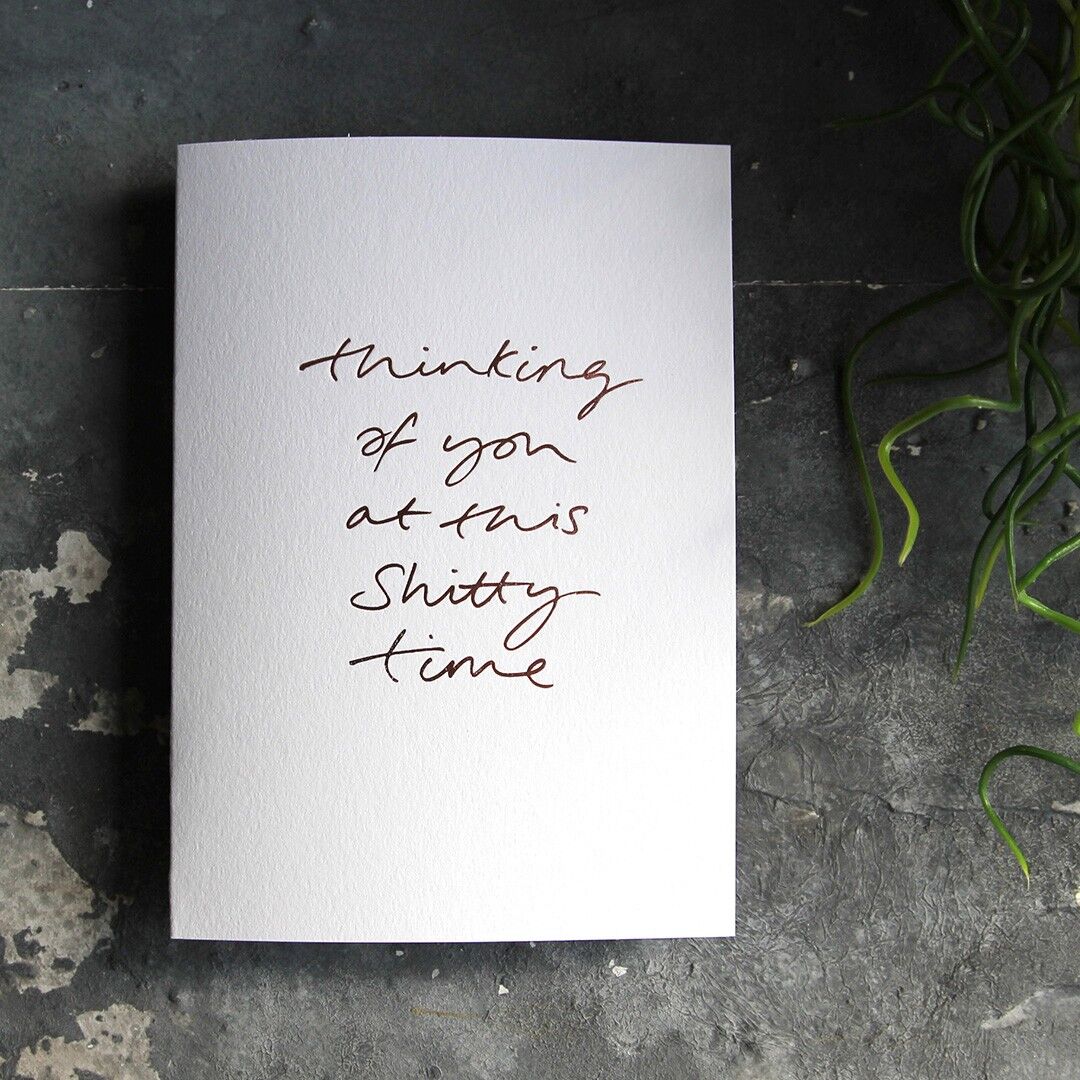 thinking
of you
at this
Shitty
time